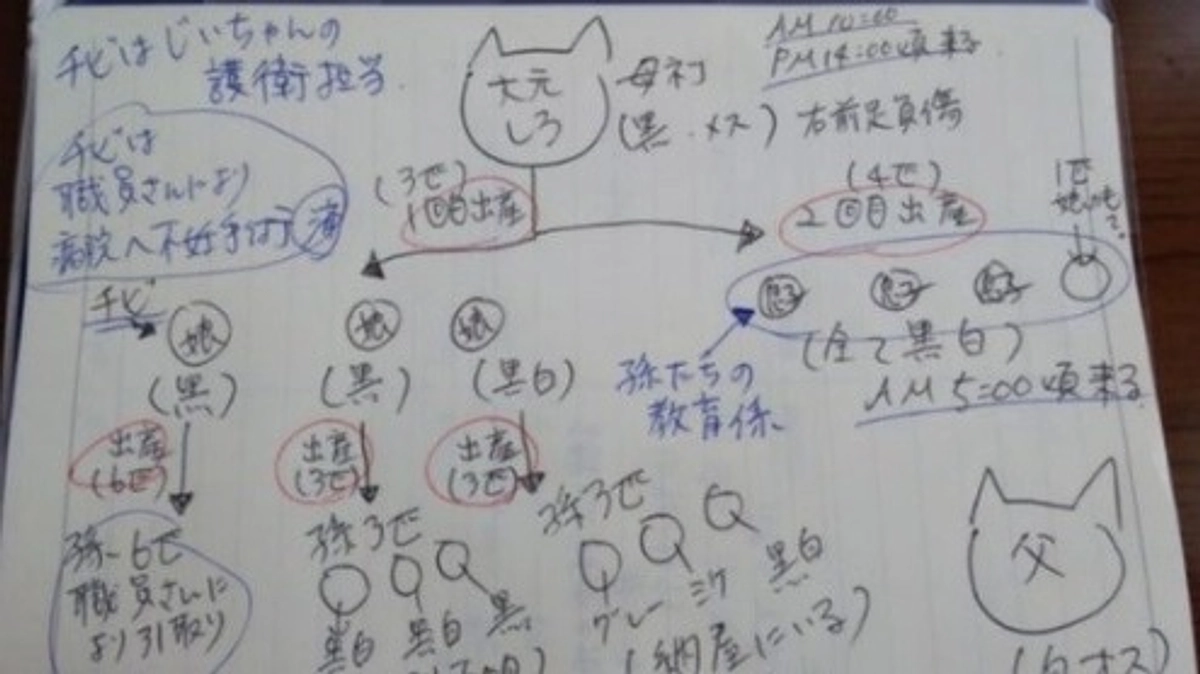 チビはじいちゃんの
護衛担当
大元
しろ
母ネコ
(黒・メス)
AM 10=00
PM 14:00頃来る
右前足負傷
チビは
職員さんにより
病院へ不妊手術 済
(3匹)
1回目出産
(4匹)
2回目出産
1匹
チビ
娘
(黒)
娘
(黒)
娘
(黒白)
息子
息子
息子
(全て黒白)
AM 5=00頃来る
孫たちの
教育係
出産
(6匹)
出産
(3匹)
出産
(3匹)
孫 6匹
職員さんに
より引取り
孫3匹
黒白
黒白
黒
孫3匹
グレー
ミケ
黒白
(納屋にいる)
父